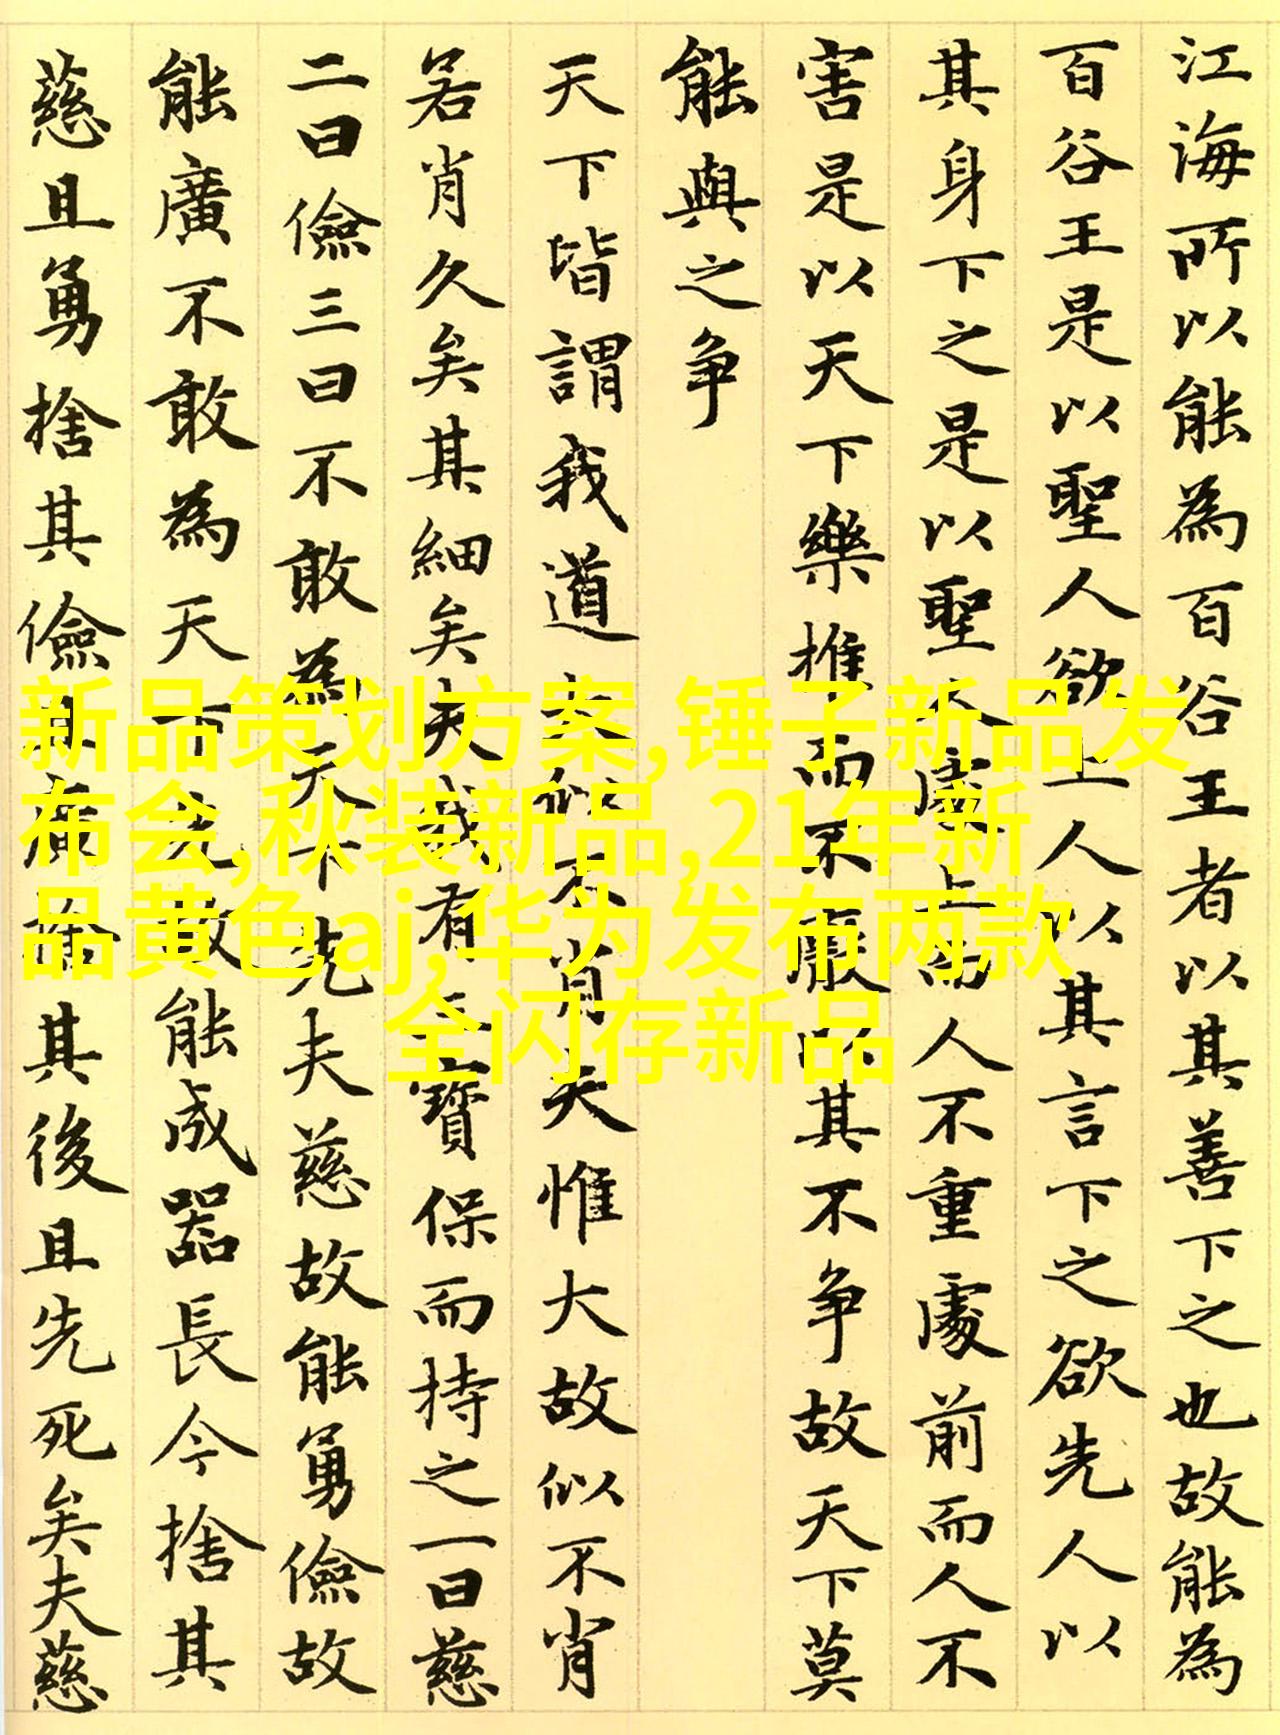 江海所以能為百谷王者以其善下之也故能為
百谷王是以聖人欲上人以其言下之欲先人以
其身下之是以聖人處上而人不重處前而人不
害是以天下樂推而不厭以其不争故天下莫
能與之争
天下皆謂我道大似不肖夫惟大故似不肖
若肖久矣其細矣夫我有三寶保而持之一曰慈
二曰儉三曰不敢為天下先夫慈故能勇儉故
能廣不敢為天下先故能成器長今捨其
慈且勇捨其儉且廣捨其後且先死矣夫慈
新品策划方案,锤子新品发
布会,秋装新品,21年新
品黄色aj,华为发布两款
全闪存新品